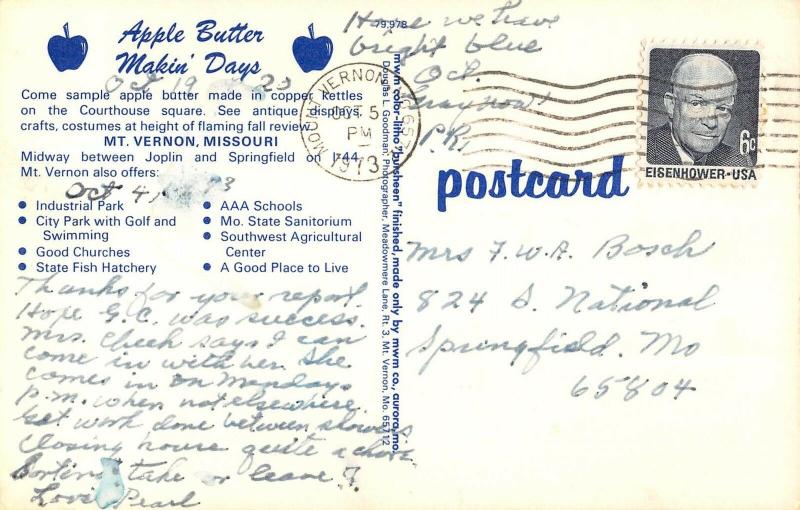 79,978
Apple Butter
Makin' Days
Oct 19 20
Come sample apple butter made in copper kettles
on the Courthouse square. See antique displays,
crafts, costumes at height of flaming fall review.
MT. VERNON, MISSOURI
Midway between Joplin and Springfield on I-44,
Mt. Vernon also offers:
Oct 4, 73
• Industrial Park
• City Park with Golf and
Swimming
• Good Churches
• State Fish Hatchery
• AAA Schools
• Mo. State Sanitorium
• Southwest Agricultural
Center
• A Good Place to Live
Thanks for your report.
Hope G.C. was success.
Mrs. Cheek says I can
come in with her. She
comes in on Mondays
p.m. when not elsewhere.
Get work done between shows
Closing house quite a chore.
take or leave
Love Pearl
Hope we have
bright blue
Oct.
P.R.
mwm color-litho "bursheen" finished, made only by mwm co., aurora, mo.
Douglas L. Goodman, Photographer, Meadowmere Lane, Rt. 3, Mt. Vernon, Mo. 65712
MOUNT VERNON
OCT 5
PM
1973
6c
EISENHOWER·USA
postcard
Mrs F.W.A. Bosch
824 S. National
Springfield. Mo
65804